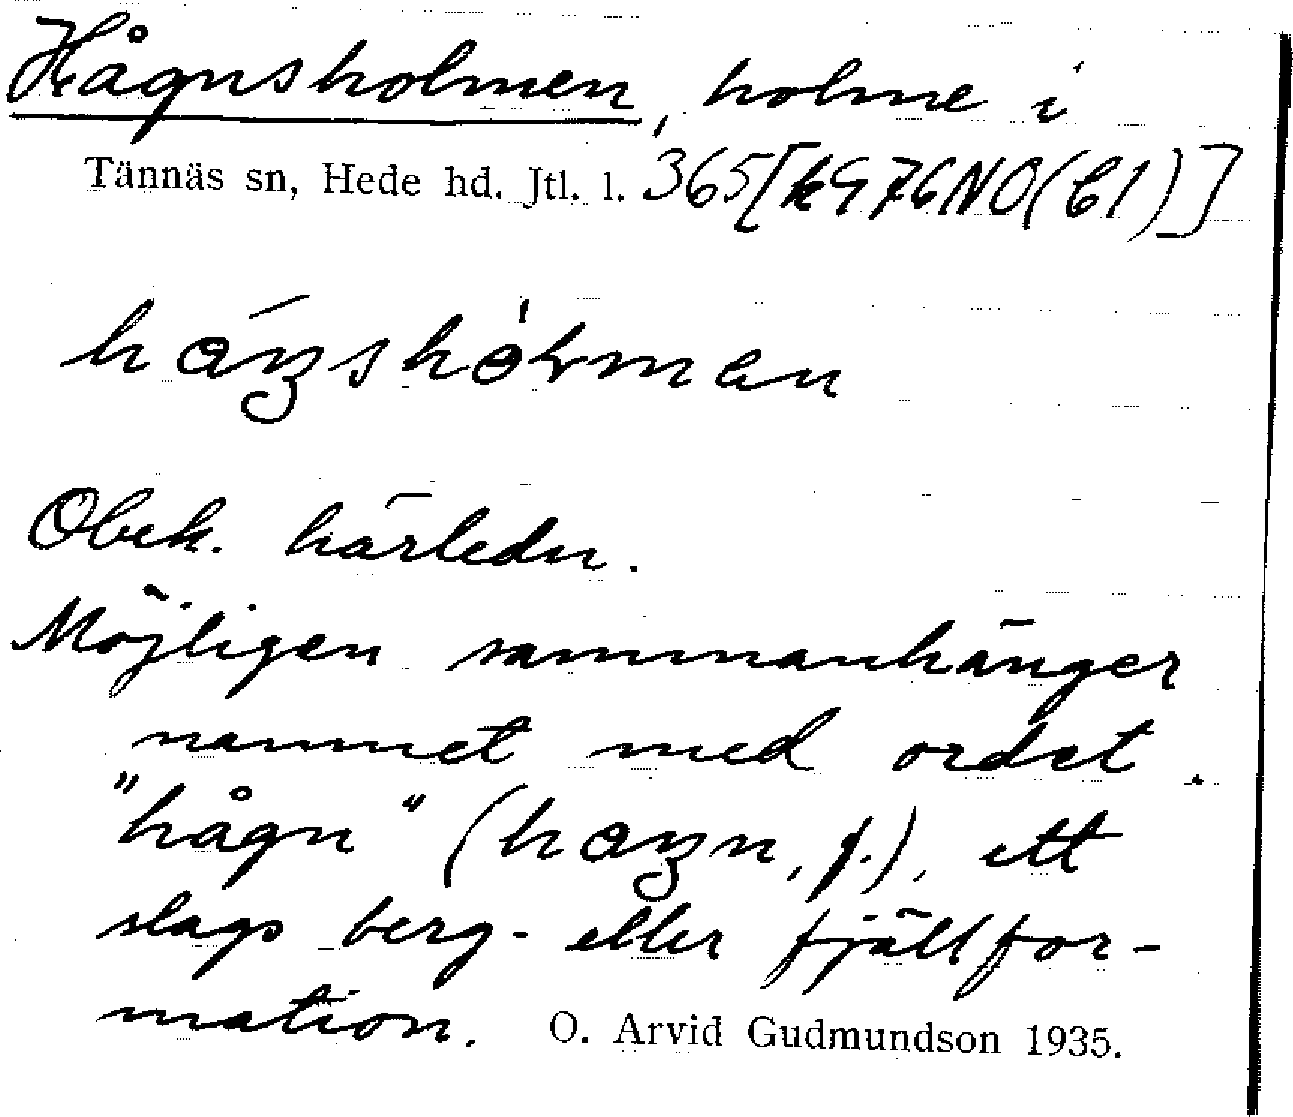 Hågnsholmen, holme i
Tännäs sn, Hede hd. Jtl. l. 365
Obek. härledn.
Möjligen sammanhänger
namnet med ordet
"hågn" ( , f.), ett
slags berg- eller fjällfor-
mation. O. Arvid Gudmundson 1935.